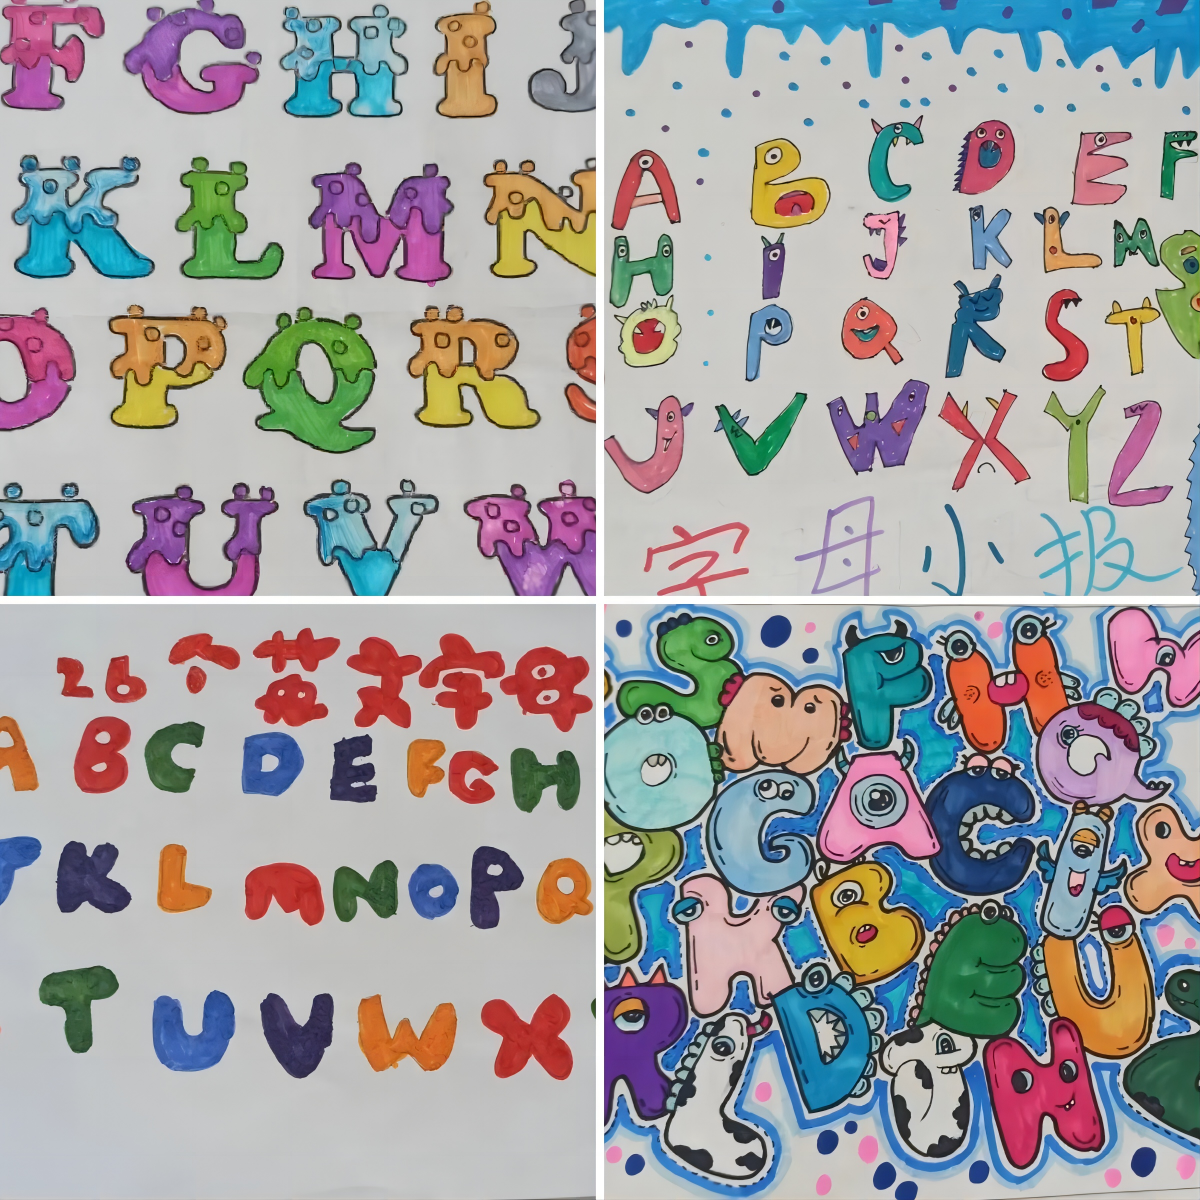 F G H I J
K L M N
O P Q R S
T U V W
A B C D E F
H I J K L M
O P Q R S T
U V W X Y Z
字母小报
26个英文字母
A B C D E F G H
J K L M N O P Q
T U V W X
S M F H
O Q
G A C I
P K B E U
R D
L T N